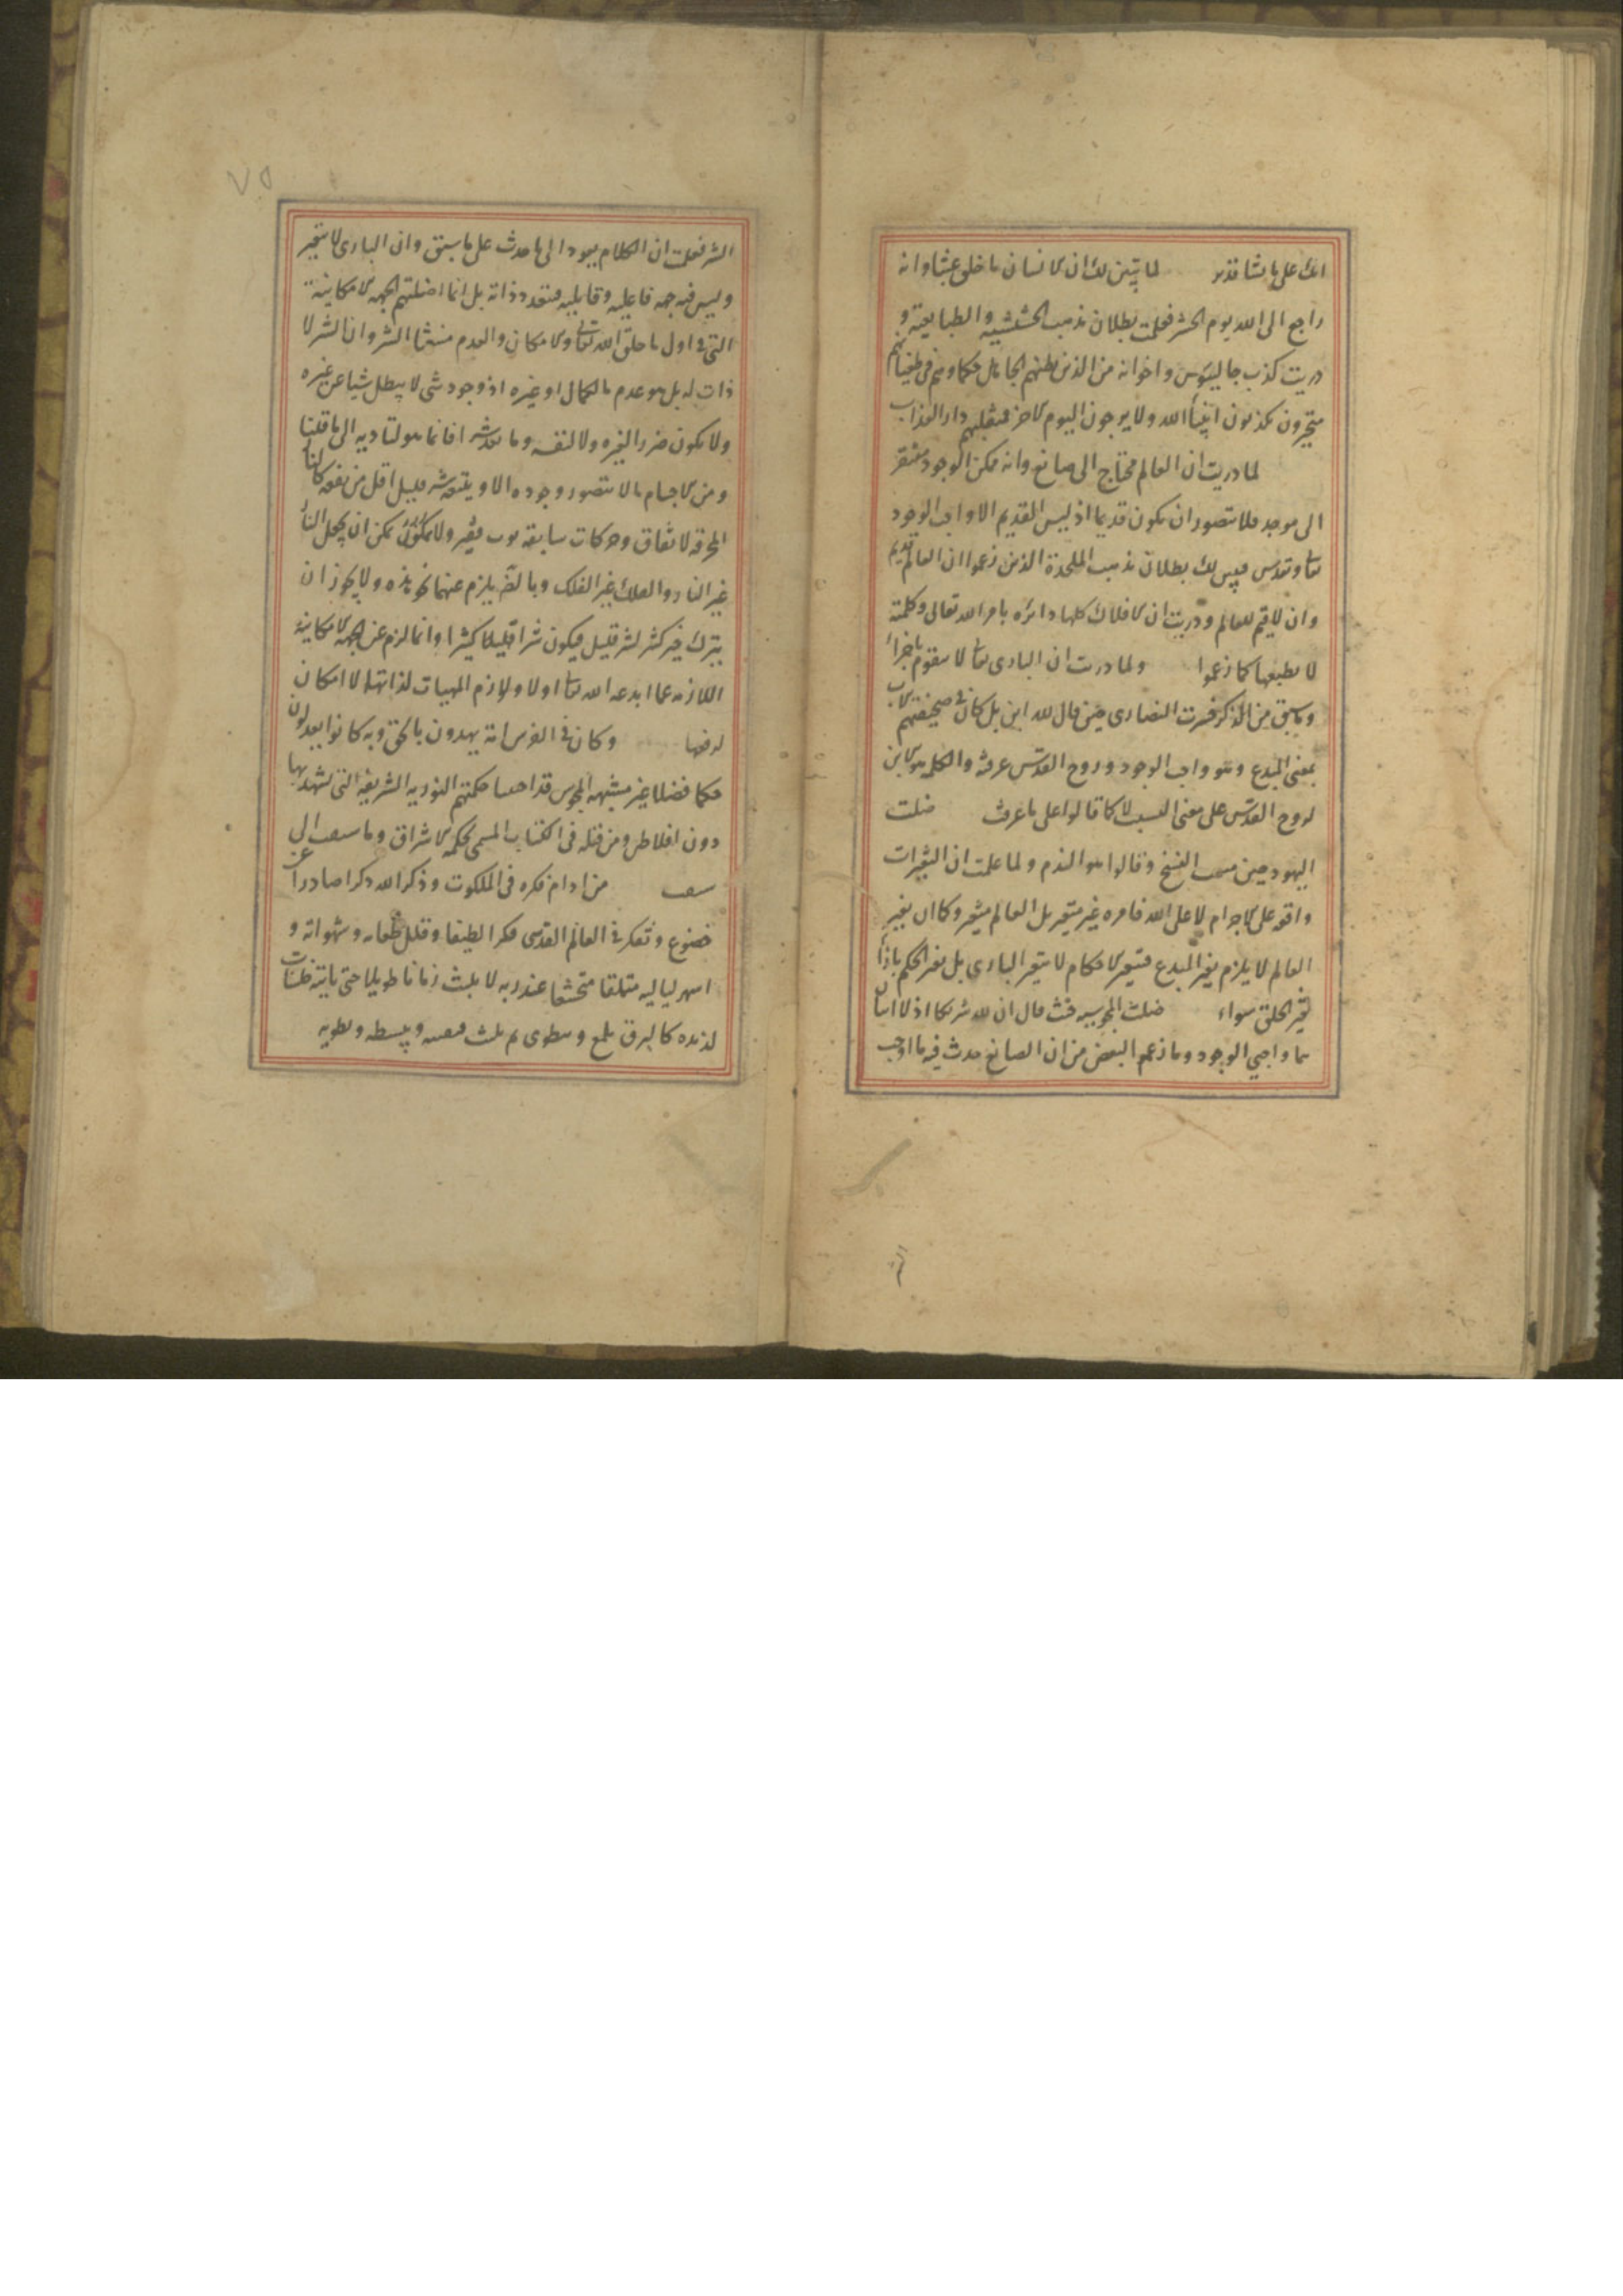 انك على ما تشا قدير لما تبين لك ان الانسان ما خلق عبثا وانه
راجع الى الله يوم الحشر فعلمت بطلان مذهب الحشيشية والطبايعية و
دريت كذب جالينوس واخوانه من الذين يظنهم الجاهل حكما وهم فى طغيانهم
متحيرون يكذبون انبيآ الله ولا يرجون اليوم الاخر فمقيلهم دار العذاب
لما دريت ان العالم محتاج الى صانع وانه ممكن الوجود مفتقر
الى موجد فلا يتصور ان يكون قديما اذ ليس القديم الا واجب الوجود
تعالى وتقدس فيبين لك بطلان مذهب الملحدة الذين زعموا ان العالم قديم
وان لا قيم للعالم ودريت ان الافلاك كلها دائره بامر الله تعالى وكلمته
لا بطبعها كما زعموا ولما دريت ان البارى تعالى لا يتقوم باجزاء
وما سبق من الذكر خسرت النصارى حين قال لله ابن بل كان فى صحيفتهم الاب
بمعنى المبدع وهو واجب الوجود وروح القدس عرفته والكلمه هو الابن
لروح القدس على معنى النسبت لا كما قالوا على ما عرفت ضلت
اليهود حين منعت النسخ وقالوا هو الندم ولما علمت ان التغيرات
واقعه على الاجرام لا على الله فامره غير متغير بل العالم متغير وكما ان تغير
العالم لا يلزم تغير المبدع فتغير الاحكام لا يتغير البارى بل تغير الحكم بازآ
تغير الخلق سواء ضلت المجوسيه حيث قال ان لله شريكا اذ لا اثنان
هما واجبي الوجود وما زعم البعض من ان الصانع حدث فيه ما اوجب
٧٥
الشر فعلمت ان الكلام يعود الى ما حدث على ما سبق وان البارى لا يتغير
وليس فيه جهه فاعليه وقابليه فتعدد ذاته بل انما اضلتهم الجهه الامكانية
التى فى اول ما خلق الله تعالى والامكان والعدم منشا الشر وان الشر لا
ذات له بل هو عدم ما لكمال او غيره اذ وجود شى لا يبطل شيا عن غيره
ولا يكون ضررا لغيره ولا لنفسه وما تعده شرا فانما هو لتاديه الى ما قلنا
ومن الاجسام ما لا يتصور وجوده الا ويتبعه شر قليل اقل من نفعه كالنار
المحرقه لاتفاق وحركات سابقه ثوب فقير ولا يمكن ان يجعل النار
غير النار والفلك غير الفلك وبالضروره يلزم عنهما نحو هذه ولا يجوز ان
يترك خير كثير لشر قليل فيكون شرا قليلا كثيرا وانما لزم عن الجهه الامكانية
اللازمه عما ابدعه الله تعالى اولا ولازم المهيات لذاتها لا امكان
لرفعها وكان فى الفرس امة يهدون بالحق وبه كانوا يعدلون
حكما فضلا غير مشبهه المجوس قد احيينا حكمتهم النوريه الشريفه التى يشهد بها
دون افلاطن ومن قبله فى الكتاب المسمى بحكمه الاشراق وما سبقت الى
سبقت من ادام فكره فى الملكوت وذكر الله ذكرا صادرا عن
خضوع وتفكر فى العالم القدسى فكرا لطيفا وقلل طعامه وشهواته و
اسهر لياليه متملقا متخشعا عند ربه لا يلبث زمانا طويلا حتى ياتيه خلسات
لذيذه كالبرق يلمع وينطوى ثم يلبث فيغيبه ويبسطه ويطويه